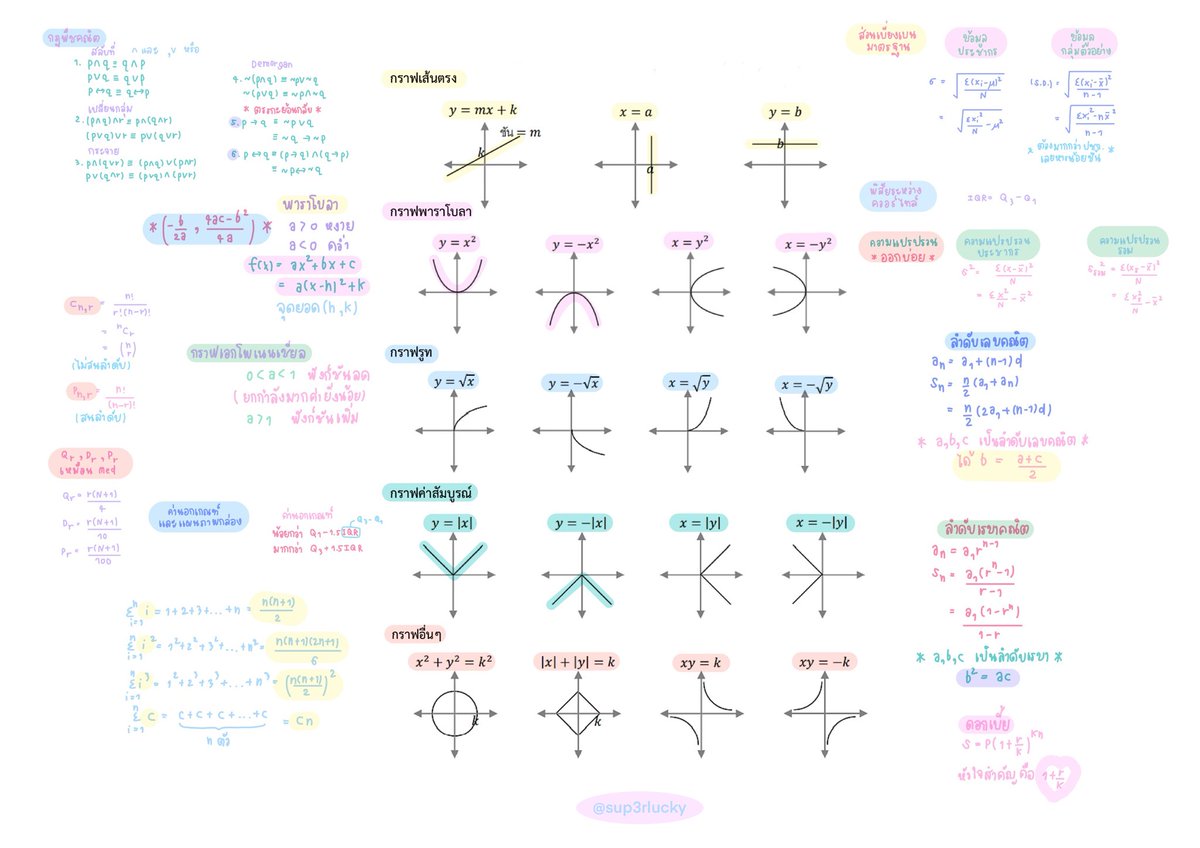 กฎพีชคณิต
สลับที่ ∧ และ , ∨ หรือ
1. p∧q ≡ q∧p
p∨q ≡ q∨p
p↔q ≡ q↔p
เปลี่ยนกลุ่ม
2. (p∧q)∧r ≡ p∧(q∧r)
(p∨q)∨r ≡ p∨(q∨r)
กระจาย
3. p∧(q∨r) ≡ (p∧q)∨(p∧r)
p∨(q∧r) ≡ (p∨q)∧(p∨r)
Demorgan
4. ~(p∧q) ≡ ~p∨~q
~(p∨q) ≡ ~p∧~q
5. p→q ≡ ~p∨q
≡ ~q→~p
6. p↔q ≡ (p→q)∧(q→p)
≡ ~p↔~q
พาราโบลา
* (-b/2a , 4ac-b²/4a) *
a>0 หงาย
a<0 คว่ำ
f(x) = ax²+bx+c
= a(x-h)²+k
จุดยอด(h,k)
Cn,r = n!/r!(n-r)!
= ⁿCr
= (n r)
(ไม่สนลำดับ)
Pn,r = n!/(n-r)!
(สนลำดับ)
กราฟเอกโพเนนเชียล
0<a<1 ฟังก์ชันลด
(ยกกำลังมากค่ายิ่งน้อย)
a>1 ฟังก์ชันเพิ่ม
Qr , Dr , Pr
เหมือน med
Qr = r(N+1)/4
Dr = r(N+1)/10
Pr = r(N+1)/100
ค่านอกเกณฑ์
และแผนภาพกล่อง
ค่านอกเกณฑ์
Q3-Q1
น้อยกว่า Q1-1.5IQR
มากกว่า Q3+1.5IQR
Σⁿi=1 i = 1+2+3+...+n = n(n+1)/2
Σⁿi=1 i² = 1²+2²+3²+...+n² = n(n+1)(2n+1)/6
Σⁿi=1 i³ = 1³+2³+3³+...+n³ = (n(n+1)/2)²
Σⁿi=1 C = C+C+C+...+C = Cn
n ตัว
กราฟเส้นตรง
y = mx + k
x = a
y = b
ชัน = m
k
a
b
กราฟพาราโบลา
y = x²
y = −x²
x = y²
x = −y²
กราฟรูท
y = √x
y = −√x
x = √y
x = −√y
กราฟค่าสัมบูรณ์
y = |x|
y = −|x|
x = |y|
x = −|y|
กราฟอื่นๆ
x² + y² = k²
|x| + |y| = k
xy = k
xy = −k
k
k
@sup3rlucky
ส่วนเบี่ยงเบน
มาตรฐาน
ข้อมูล
ประชากร
σ = √Σ(xi-μ)²/N
= √Σxi²/N - μ²
ข้อมูล
กลุ่มตัวอย่าง
(S.D.) = √Σ(xi-x̄)²/n-1
= √Σxi²-nx̄²/n-1
พิสัยระหว่าง
ควอร์ไทล์
IQR = Q3-Q1
ความแปรปรวน
*ออกบ่อย*
ความแปรปรวน
ประชากร
σ² = Σ(x-x̄)²/N
= Σx²/N - x̄²
ความแปรปรวน
รวม
ลำดับเลขคณิต
an = a1+(n-1)d
Sn = n/2(a1+an)
= n/2(2a1+(n-1)d)
* a,b,c เป็นลำดับเลขคณิต *
ได้ b = a+c/2
ลำดับเรขาคณิต
an = a1rⁿ⁻¹
Sn = a1(rⁿ-1)/r-1
= a1(1-rⁿ)/1-r
* a,b,c เป็นลำดับเรขา *
b² = ac
ดอกเบี้ย
S = P(1+r/k)ᵏⁿ
หัวใจสำคัญคือ 1+r/k